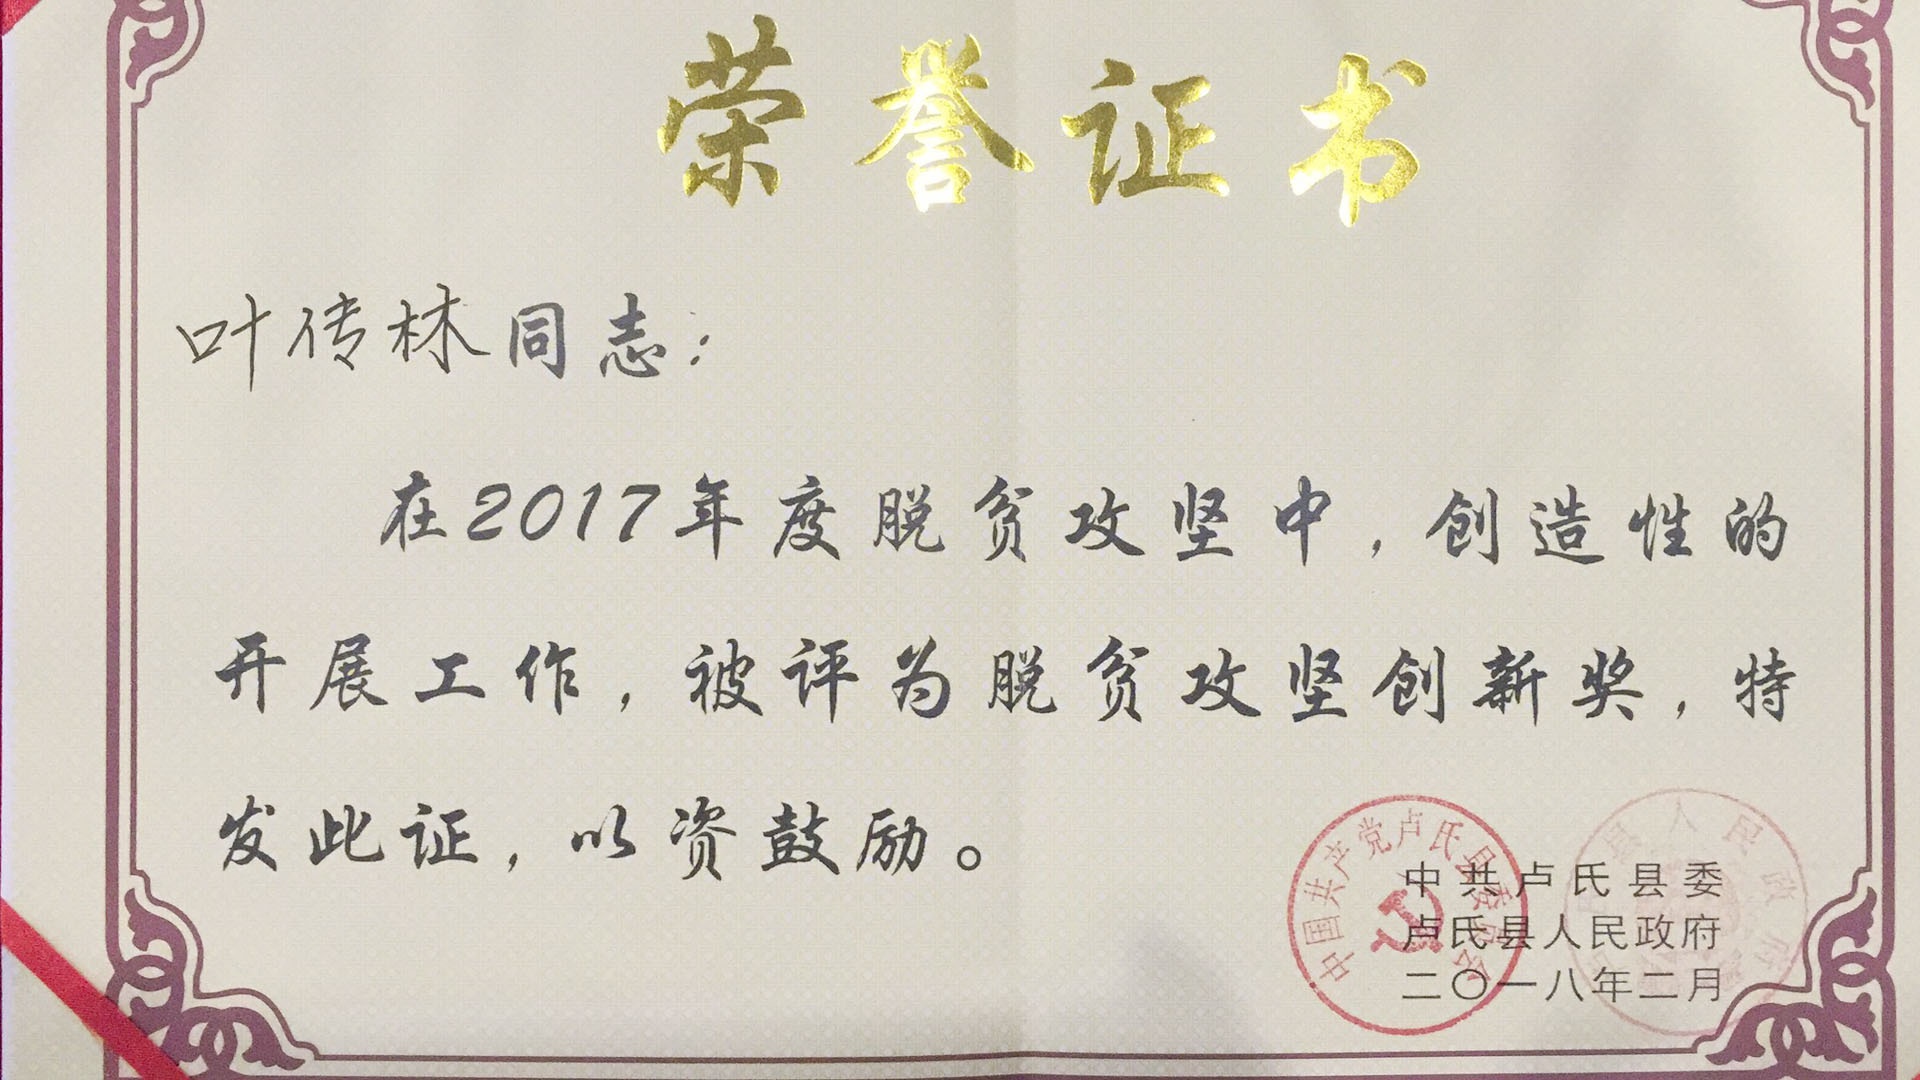 荣誉证书
叶传林同志:
在2017年度脱贫攻坚中,创造性的
开展工作,被评为脱贫攻坚创新奖,特
发此证,以资鼓励。
中国共产党卢氏县委员会
县人民政府
中共卢氏县委
卢氏县人民政府
二〇一八年二月